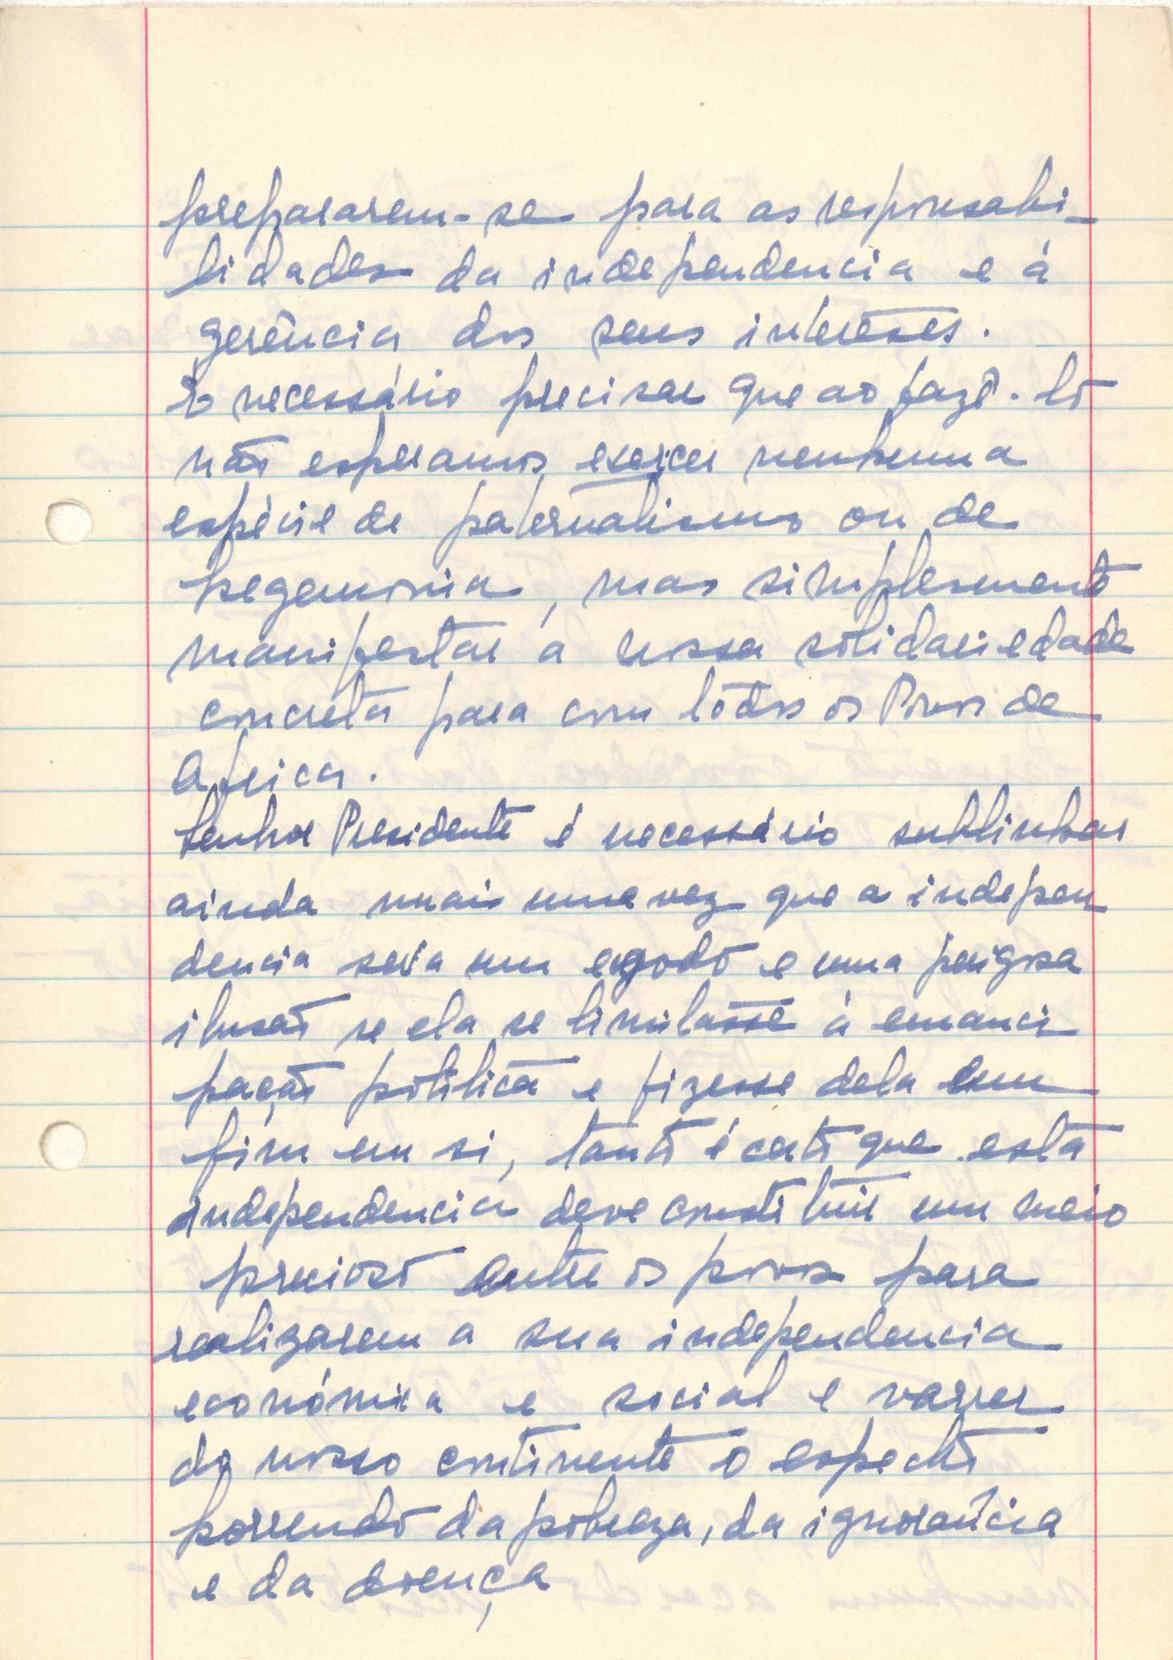 prepararem-se para as responsabi-
lidades da independencia e à
gerência dos seus interêsses.
É necessário precisar que ao fazê-lo
não esperamos exercer nenhuma
espécie de paternalismo ou de
hegemonia, mas simplesmente
manifestar a nossa solidariedade
concreta para com todos os Povos de
Africa.
Senhor Presidente é necessário sublinhar
ainda mais uma vez que a indepen
dencia seria um engodo e uma perigosa
ilusão se ela se limitasse à emanci
pação politica e fizesse dela um
fim em si, tanto é certo que esta
independencia deve constituir um meio
precioso entre os povos para
realizarem a sua independencia
económica e social e varrer
do nosso continente o espectro
horrendo da pobreza, da ignorância
e da doença